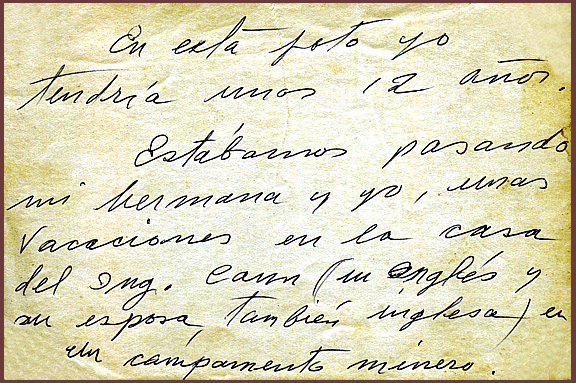 En esta foto yo
tendría unos 12 años.
Estábamos pasando
mi hermana y yo, unas
vacaciones en la casa
del Ing. Cann (un inglés y
su esposa, también inglesa) en
un campamento minero.